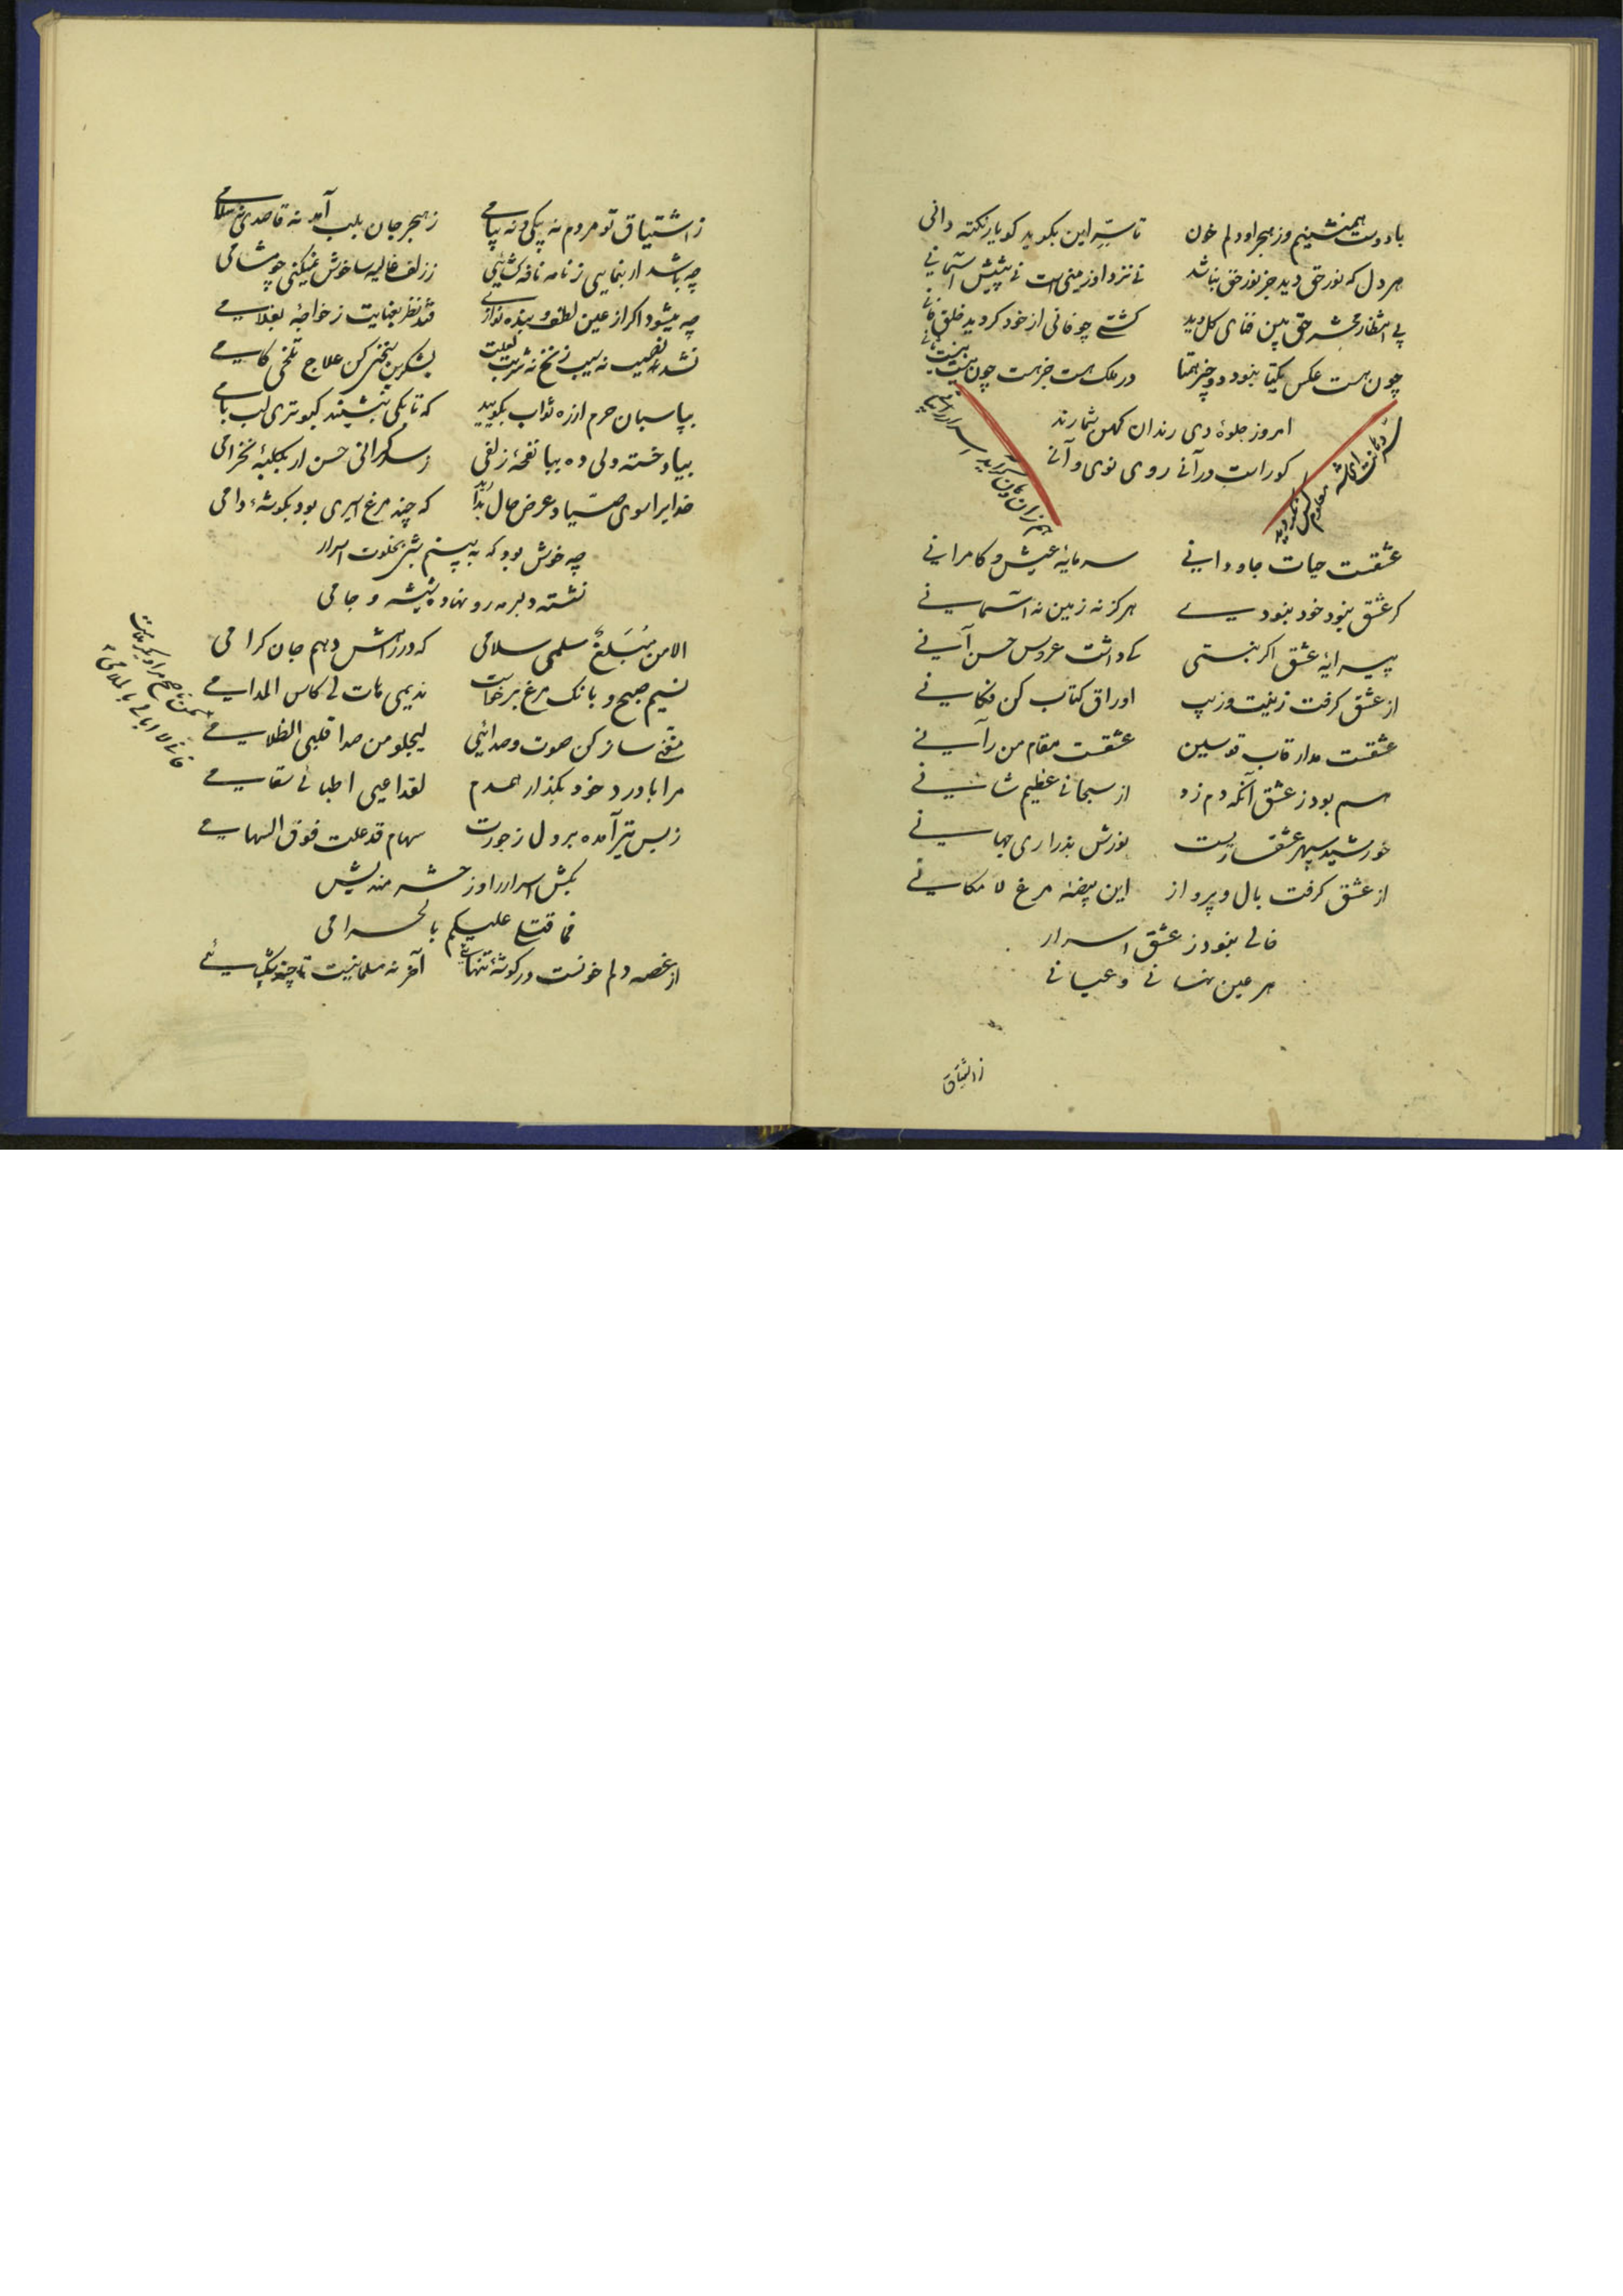 با دوست همنشینم وز هجر او دلم خون تا سرّ این بگوید کو یار نکته دانی
هر دل که نور حق دید جز نور حق نباشد نی نزد او زمینی است نی پیشش آسمانی
پی انتظار محشر حق بین فنای کل دید گشتی چو فانی از خود گردید خلق فانی
چون هست عکس یکتا نبود دو چیز همتا در ملک هست جز هست چون نیست نیست ثانی
امروز جلوهٔ دی رندان کهن شمارند
کو راست در آنی روی نوی و آنی
عشقست حیات جاودانی سرمایهٔ عیش و کامرانی
گر عشق نبود خود نبودی هرگز نه زمین نه آسمانی
پیرایهٔ عشق اگر نبستی کی داشت عروس حسن آنی
از عشق گرفت زینت و زیب اوراق کتاب کن فکانی
عشقست مدار قاب قوسین عشقست مقام من رآنی
هم بود ز عشق آنکه دم زد از سبحانی عظیم شانی
خورشید سپهر عشق نورش بذراری جهانی
از عشق گرفت بال و پرواز این بیضهٔ مرغ لامکانی
خالی نبود ز عشق اسرار
هر عین نهانی و عیانی
ز اشتیاق
ز اشتیاق تو مردم نه پیکی و نه پیامی ز هجر جان بلب آمد نه قاصدی نه سلامی
چه باشد ار بنمایی ز نامه نافه گشایی ز زلف غالیه سا خوش نمیکنی چو مشامی
چه میشود اگر از عین لطف و بنده نوازی فتد نظر بعنایت ز خواجهٔ بغلامی
نشد نصیب نه سیب زنخ نه شربت لعلت بشکرین سخنی کن علاج تلخی کامی
بپاسبان حرم از ره ثواب بگویید که تا بکی ننشیند کبوتری لب بامی
بیاد خسته دلی ده بها نفحهٔ زلفی ز سرگرانی حسن ار بکلبهٔ نخرامی
خدایرا سوی صیّاد عرض حال بدارید که چند مرغ اسیری بود بگوشهٔ دامی
چه خوش بود که ببینم شبی بخلوت اسرار
نشسته دلبر مه رو نهاده شیشه و جامی
الا من مُبَلغٌ سلمی سلامی که در راهش دهم جان گرامی
نسیم صبح و بانک مرغ برخاست ندیمی هات لی کاس المدامی
مغنّی ساز کن صوت و صدائی لیجلو من صدا قلبی الظلامی
مرا با درد خود بگذار همدم لقد اعیی اطبائی سقامی
ز بس تیر آمده بر دل ز جورت سهام قد علت فوق السهامی
بکش اسرار را وز حشر مندیش
فما قتلی علیکم بالحرامی
از غصه دلم خونست در گوشهٔ تنهائی آخر نه مسلمانیست تا چند شکیبائی